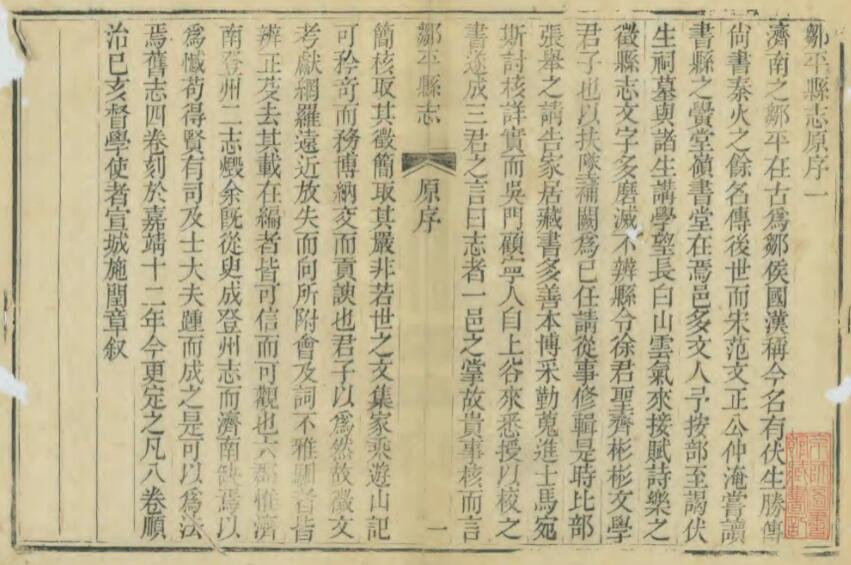 鄒平縣志原序一
濟南之鄒平在古爲鄒侯國漢稱今名有伏生勝傳
尙書秦火之餘名傳後世而宋范文正公仲淹嘗讀
書縣之黌堂嶺書堂在焉邑多文人予按部至謁伏
生祠墓與諸生講學望長白山雲氣來接賦詩樂之
徵縣志文字多磨滅不辨縣令徐君聖齊彬彬文學
君子也以扶墜補闕爲已任請從事修輯是時比部
張舉之請告家居藏書多善本博采勤蒐進士馬宛
斯討核詳實而吳門顧寧人自上谷來悉授以校之
書遂成三君之言曰志者一邑之掌故貴事核而言
鄒平縣志
原序
一
簡核取其徵簡取其嚴非若世之文集家乘遊山記
可矜奇而務博納交而貢諛也君子以爲然故徵文
考獻網羅遠近放失而向所附會及詞不雅馴者皆
辨正芟去其載在編者皆可信而可觀也六郡惟濟
南登州二志燬余旣從臾成登州志而濟南缺焉以
爲憾苟得賢有司及士大夫踵而成之是可以爲法
焉舊志四卷刻於嘉靖十二年今更定之凡八卷順
治已亥督學使者宣城施閏章叙